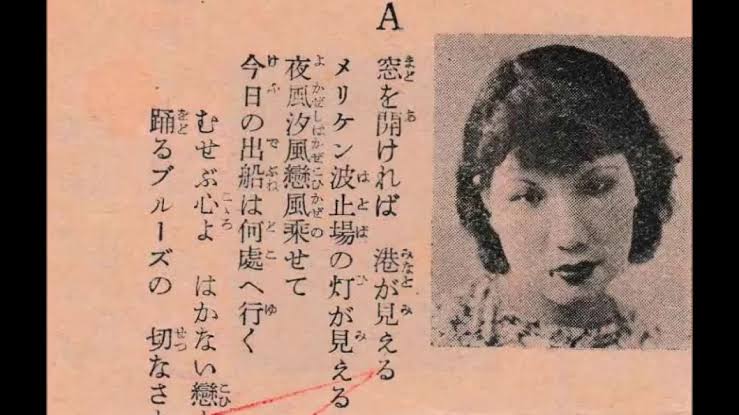 A
窓を開ければ 港が見える
メリケン波止場の灯が見える
夜風汐風戀風乗せて
今日の出船は何處へ行く
むせぶ心よ はかない戀
踊るブルーズの 切なさ